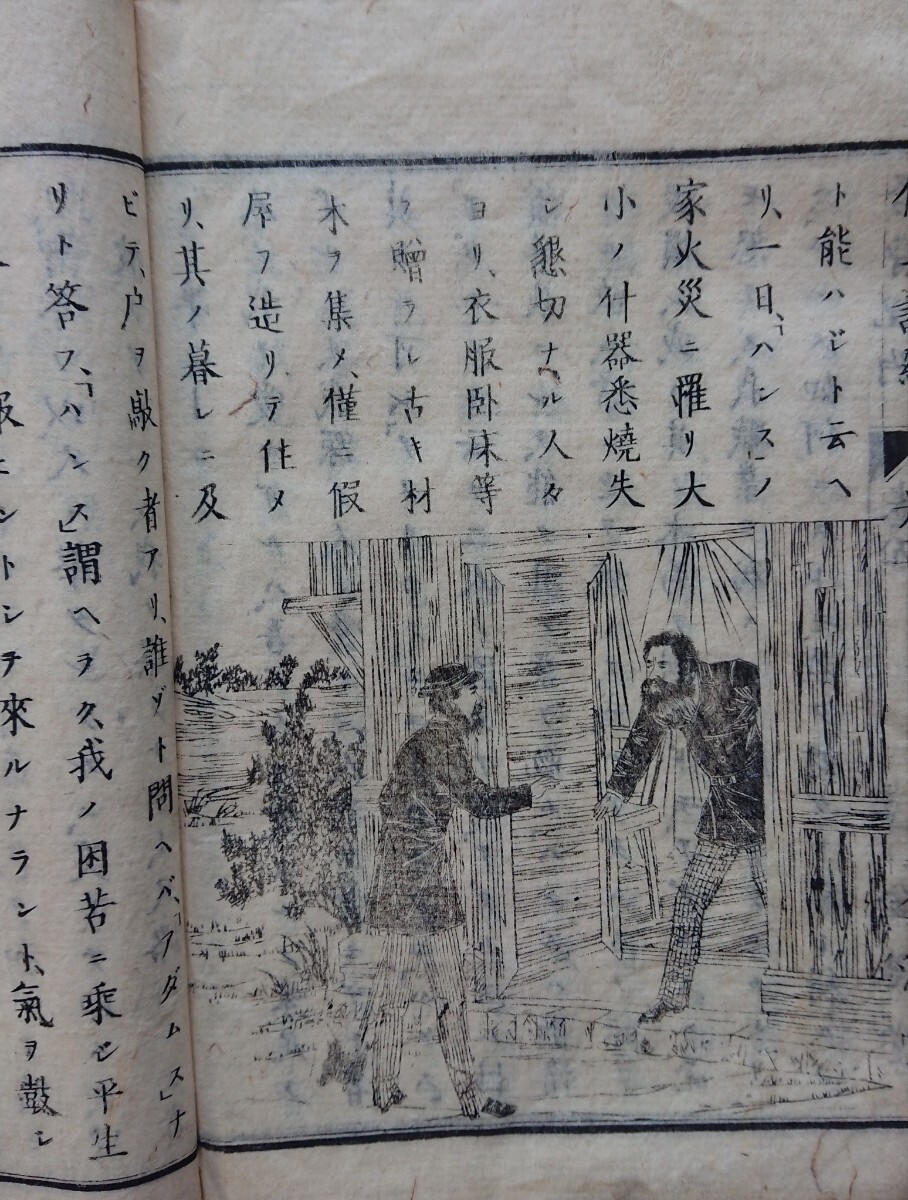 ト能ハジト云ヘ
リ、一日、「ハンス」ノ
家火災ニ罹リ大
小ノ什器悉燒失
シ懇切ナル人々
ヨリ、衣服臥床等
ヲ贈ラレ古キ材
木ヲ集メ、僅ニ假
屋ヲ造リテ住メ
リ、其ノ暮レニ及
ビテ、戸ヲ敲ク者アリ、誰ゾト問ヘバ、「アダムス」ナ
リト答フ、「ハンス」謂ヘラク、我ノ困苦ニ乘ジ平生
報ヒントシテ來ルナラント、氣ヲ鼓シ